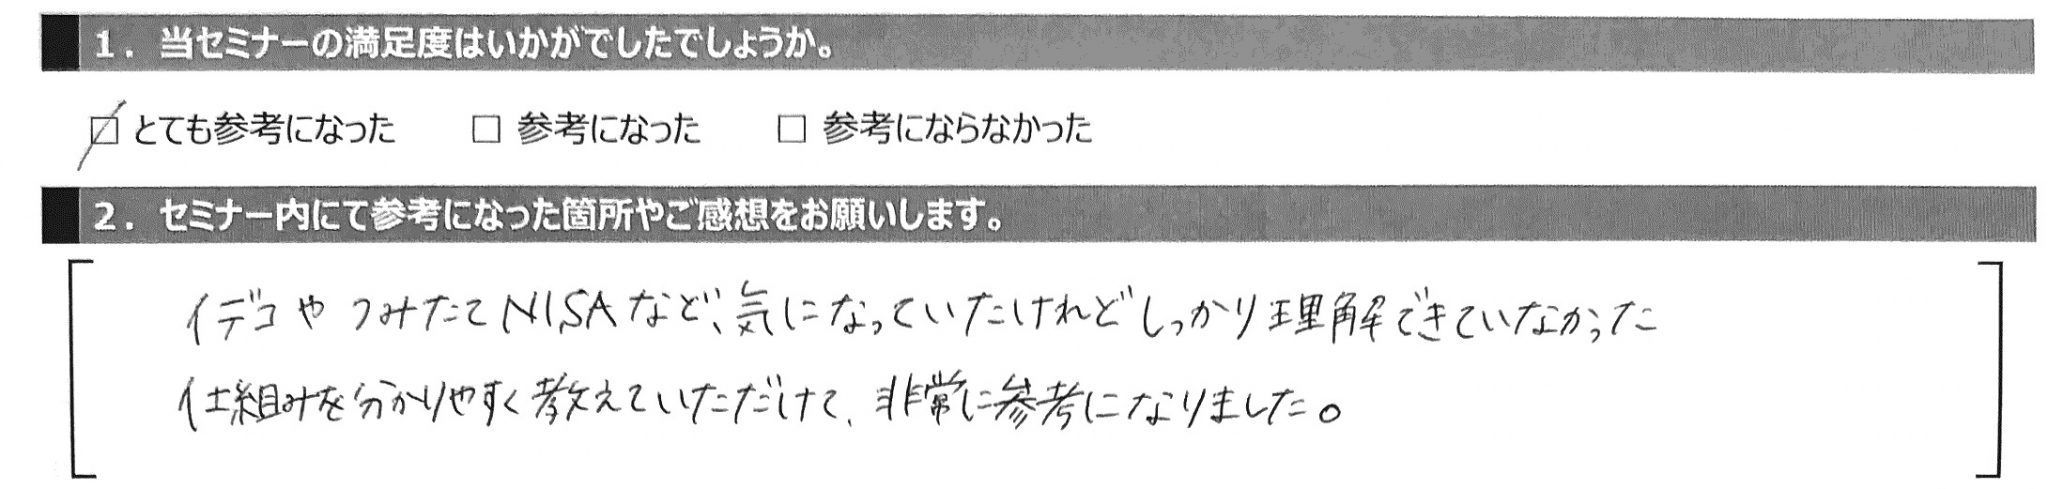 1. 当セミナーの満足度はいかがでしたでしょうか。
☑ とても参考になった □ 参考になった □ 参考にならなかった
2. セミナー内にて参考になった箇所やご感想をお願いします。
イデコやつみたてNISAなど、気になっていたけれどしっかり理解できていなかった
仕組みを分かりやすく教えていただけて、非常に参考になりました。